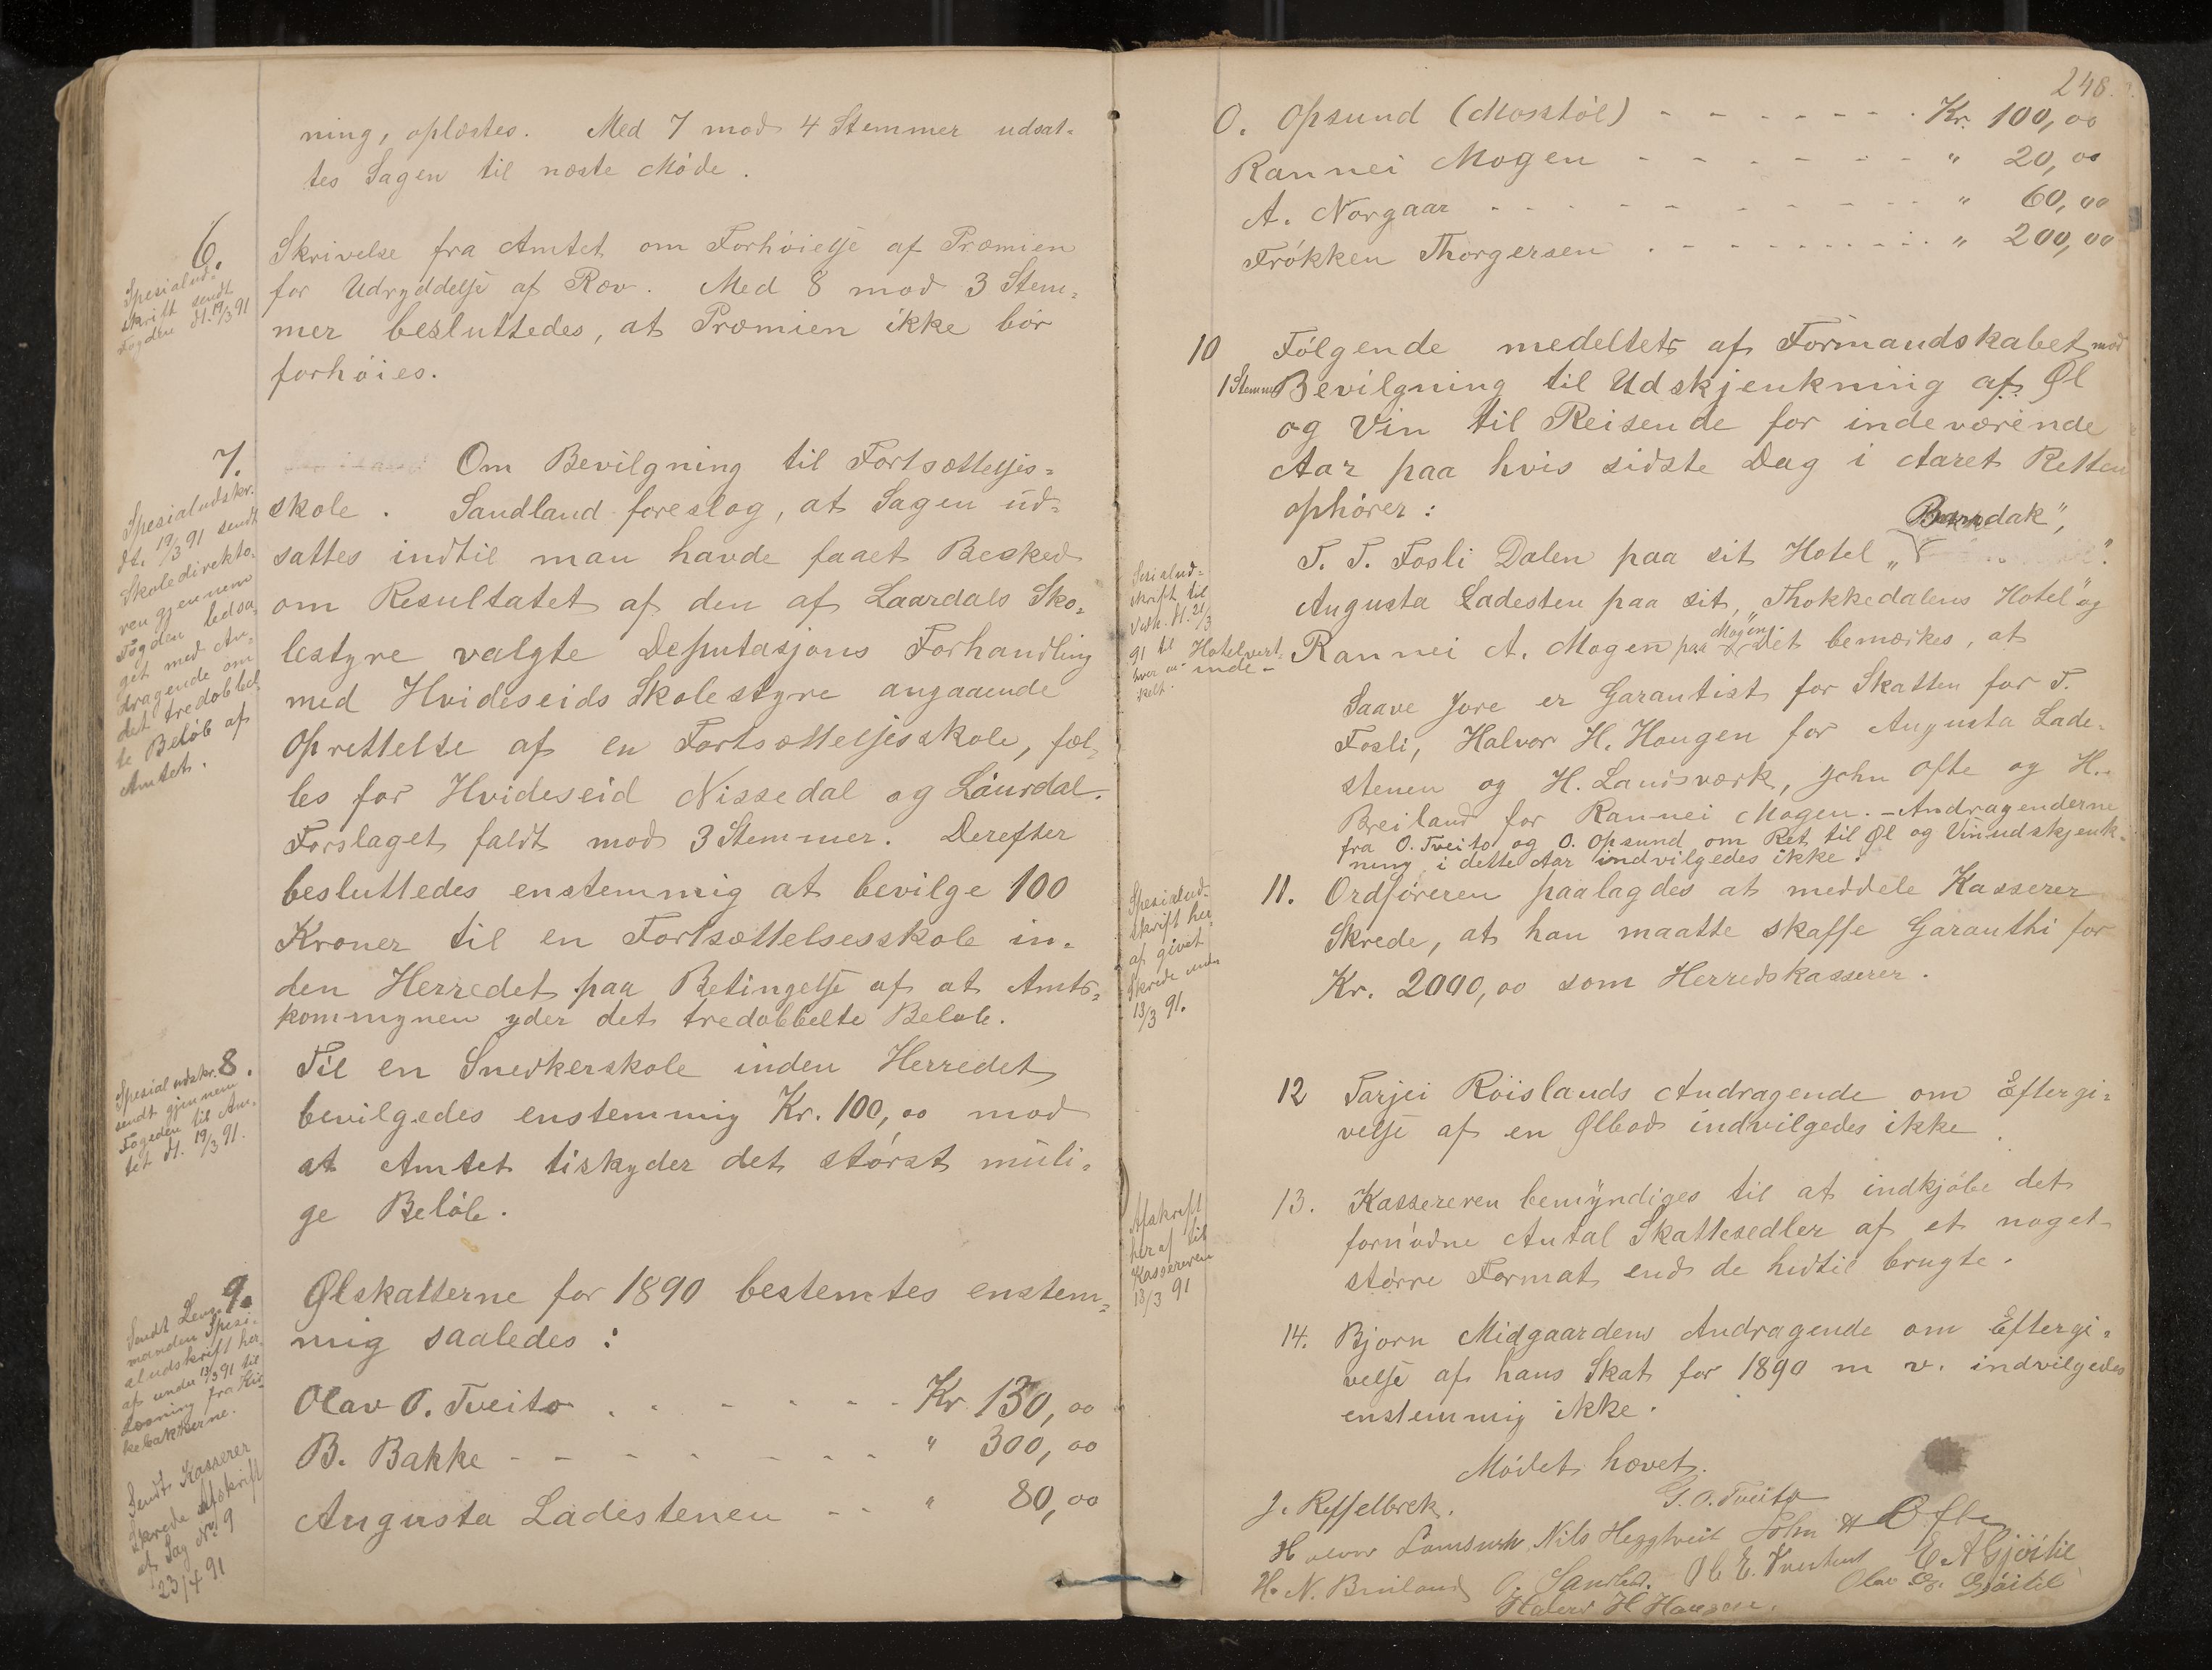 ning, oplæstes. Med 7 mod 4 Stemmer udsat-
tes Sagen til næste Møde.
6.
Spesialud-
skrift sendt
Fogden dt. 19/3 91
Skrivelse fra Amtet om Forhøielse af Præmien
for Udryddelse af Ræv. Med 8 mod 3 Stem-
mer besluttedes, at Præmien ikke bør
forhøies.
7.
Spesialudskr.
dt. 19/3 91 sendt
Skoledirektø-
ren gjennem
Fogden ledsa-
get med An-
dragende om
det tredobbel-
te Beløb af
Amtet.
Om Bevilgning til Fortsættelses-
skole. Sandland foreslog, at Sagen ud-
sattes indtil man havde faaet Besked
om Resultatet af den af Laardals Sko-
lestyre valgte Deputasjons Forhandling
med Hvideseids Skolestyre angaaende
Oprettelse af en Fortsættelsesskole, fæl-
les for Hvideseid Nissedal og Laurdal.
Forslaget faldt mod 3 Stemmer. Derefter
besluttedes enstemmig at bevilge 100
Kroner til en Fortsættelsesskole in-
den Herredet paa Betingelse af at Amts-
kommynen yder det tredobbelte Beløb.
8.
Spesialudskr.
sendt gjennem
Fogeden til Am-
tet dt. 19/3 91.
Til en Snedkerskole inden Herredet
bevilgedes enstemmig Kr. 100,00 mod
at Amtet tiskyder det størst muli-
ge Beløb.
9.
Sendt Lens-
manden Spesi-
aludskrift her-
af under 13/3 91 til
Løsning fra Kir-
kebakkerne.
Sendt Kasserer
Skrede Afskrift
af Sag No 9
23/4 91
Ølskatterne for 1890 bestemtes enstem-
mig saaledes:
Olav O. Tveito . - - - - - Kr 130,00
B. Bakke - - - - - - - " 300,00
Augusta Ladestenen - - " 80,00
248.
O. Opsund (Mosstøl) - - - - - - - Kr. 100,00
Rannei Mogen - - - - - - - " 20,00
A. Norgaar - - - - - - - - - " 60,00
Frøkken Thorgersen - - - - - - - - " 200,00
10 Følgende medeltets af Formandskabet mod
1 Stemme Bevilgning til Udskjenkning af Øl
og Vin til Reisende for indeværende
Aar paa hvis sidste Dag i Aaret Retten
ophører:
Bandak",
T. T. Fosli Dalen paa sit Hotel „
Augusta Ladesten paa sit „Thokkedalens Hotel" og
Rannei A. Mogen paa Mogen. det bemærkes, at
Saave Jore er Garantist for Skatten for T.
Fosli, Halvor H. Haugen for Augusta Lade-
stenen og H. Lauisværk, John Ofte og H.
Breiland for Rannei Mogen. - Andragenderne
fra O. Tveito og O. Opsund om Ret til Øl og Vinudskjenk-
ning i dette Aar indvilgedes ikke.
Sesialud-
skrift til
Vedk. dt. 21/3
91 til Hotelvert-
inde
hver en-
kelt.
11. Ordføreren paalagdes at meddele Kasserer
Skrede, at han maatte skaffe Garanthi for
Kr. 2000,00 som Herredskasserer.
Spesialud-
skrift her-
af givet
Skrede under
13/3 91.
12 Tarjei Röislands Andragende om Eftergi-
velse af en Ølbod indvilgedes ikke.
13. Kassereren bemyndiges til at indkjøbe det
fornødne Antal Skattesedler af et noget
større Format end de hidtil brugte.
Afskrift
heraf til
Kassereren
13/3 91
14. Bjorn Midgaardens Andragende om Eftergi-
velse af hans Skat for 1890 m v. indvilgedes
enstemmig ikke.
Mødet hævet.
J. Reffelbrek.
G. O. Tveito
Nils Heggtveit
John H Ofte
H. N. Breiland
O. Sandland.
E. A Gjøitil
Olav G. Gjøitil
Halvor H Haugene.